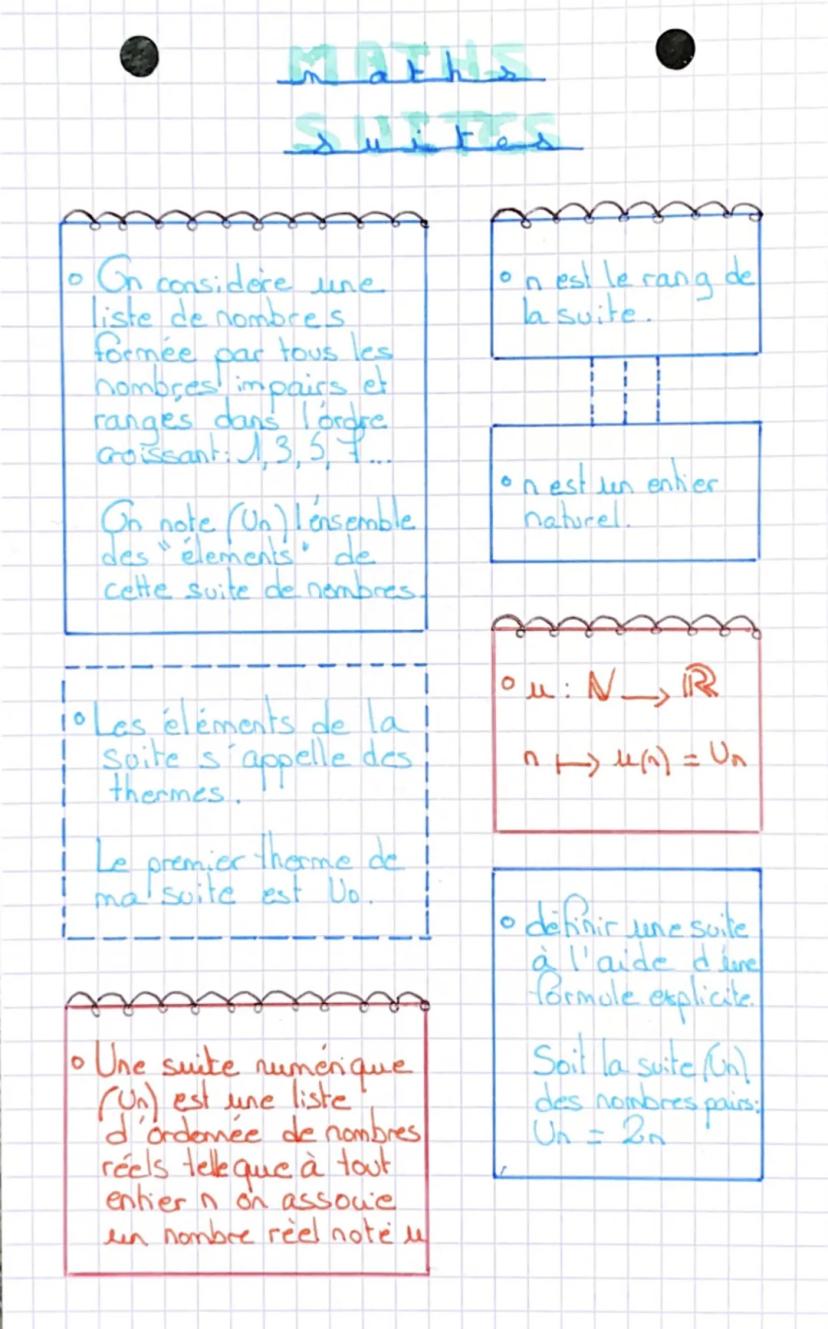 MATHS
maths
SUITES
suites
On considère une
liste de nombres
formée par tous les
nombres impairs et
rangés dans l'ordre
croissant : 1, 3, 5, 7...
On note (Un) l'ensemble
des "élements" de
cette suite de nombres.
Les éléments de la
suite s'appelle des
thermes.
Le premier therme de
ma suite est U0.
Une suite numérique
(Un) est une liste
d'ordonnée de nombres
réels telle que à tout
entier n on associe
un nombre réel noté u
n est le rang de
la suite.
n est un entier
naturel.
u : ℕ → ℝ
n ↦ u(n) = Un
définir une suite
à l'aide d'une
formule explicite.
Soit la suite (Un)
des nombres pairs :
Un = 2n